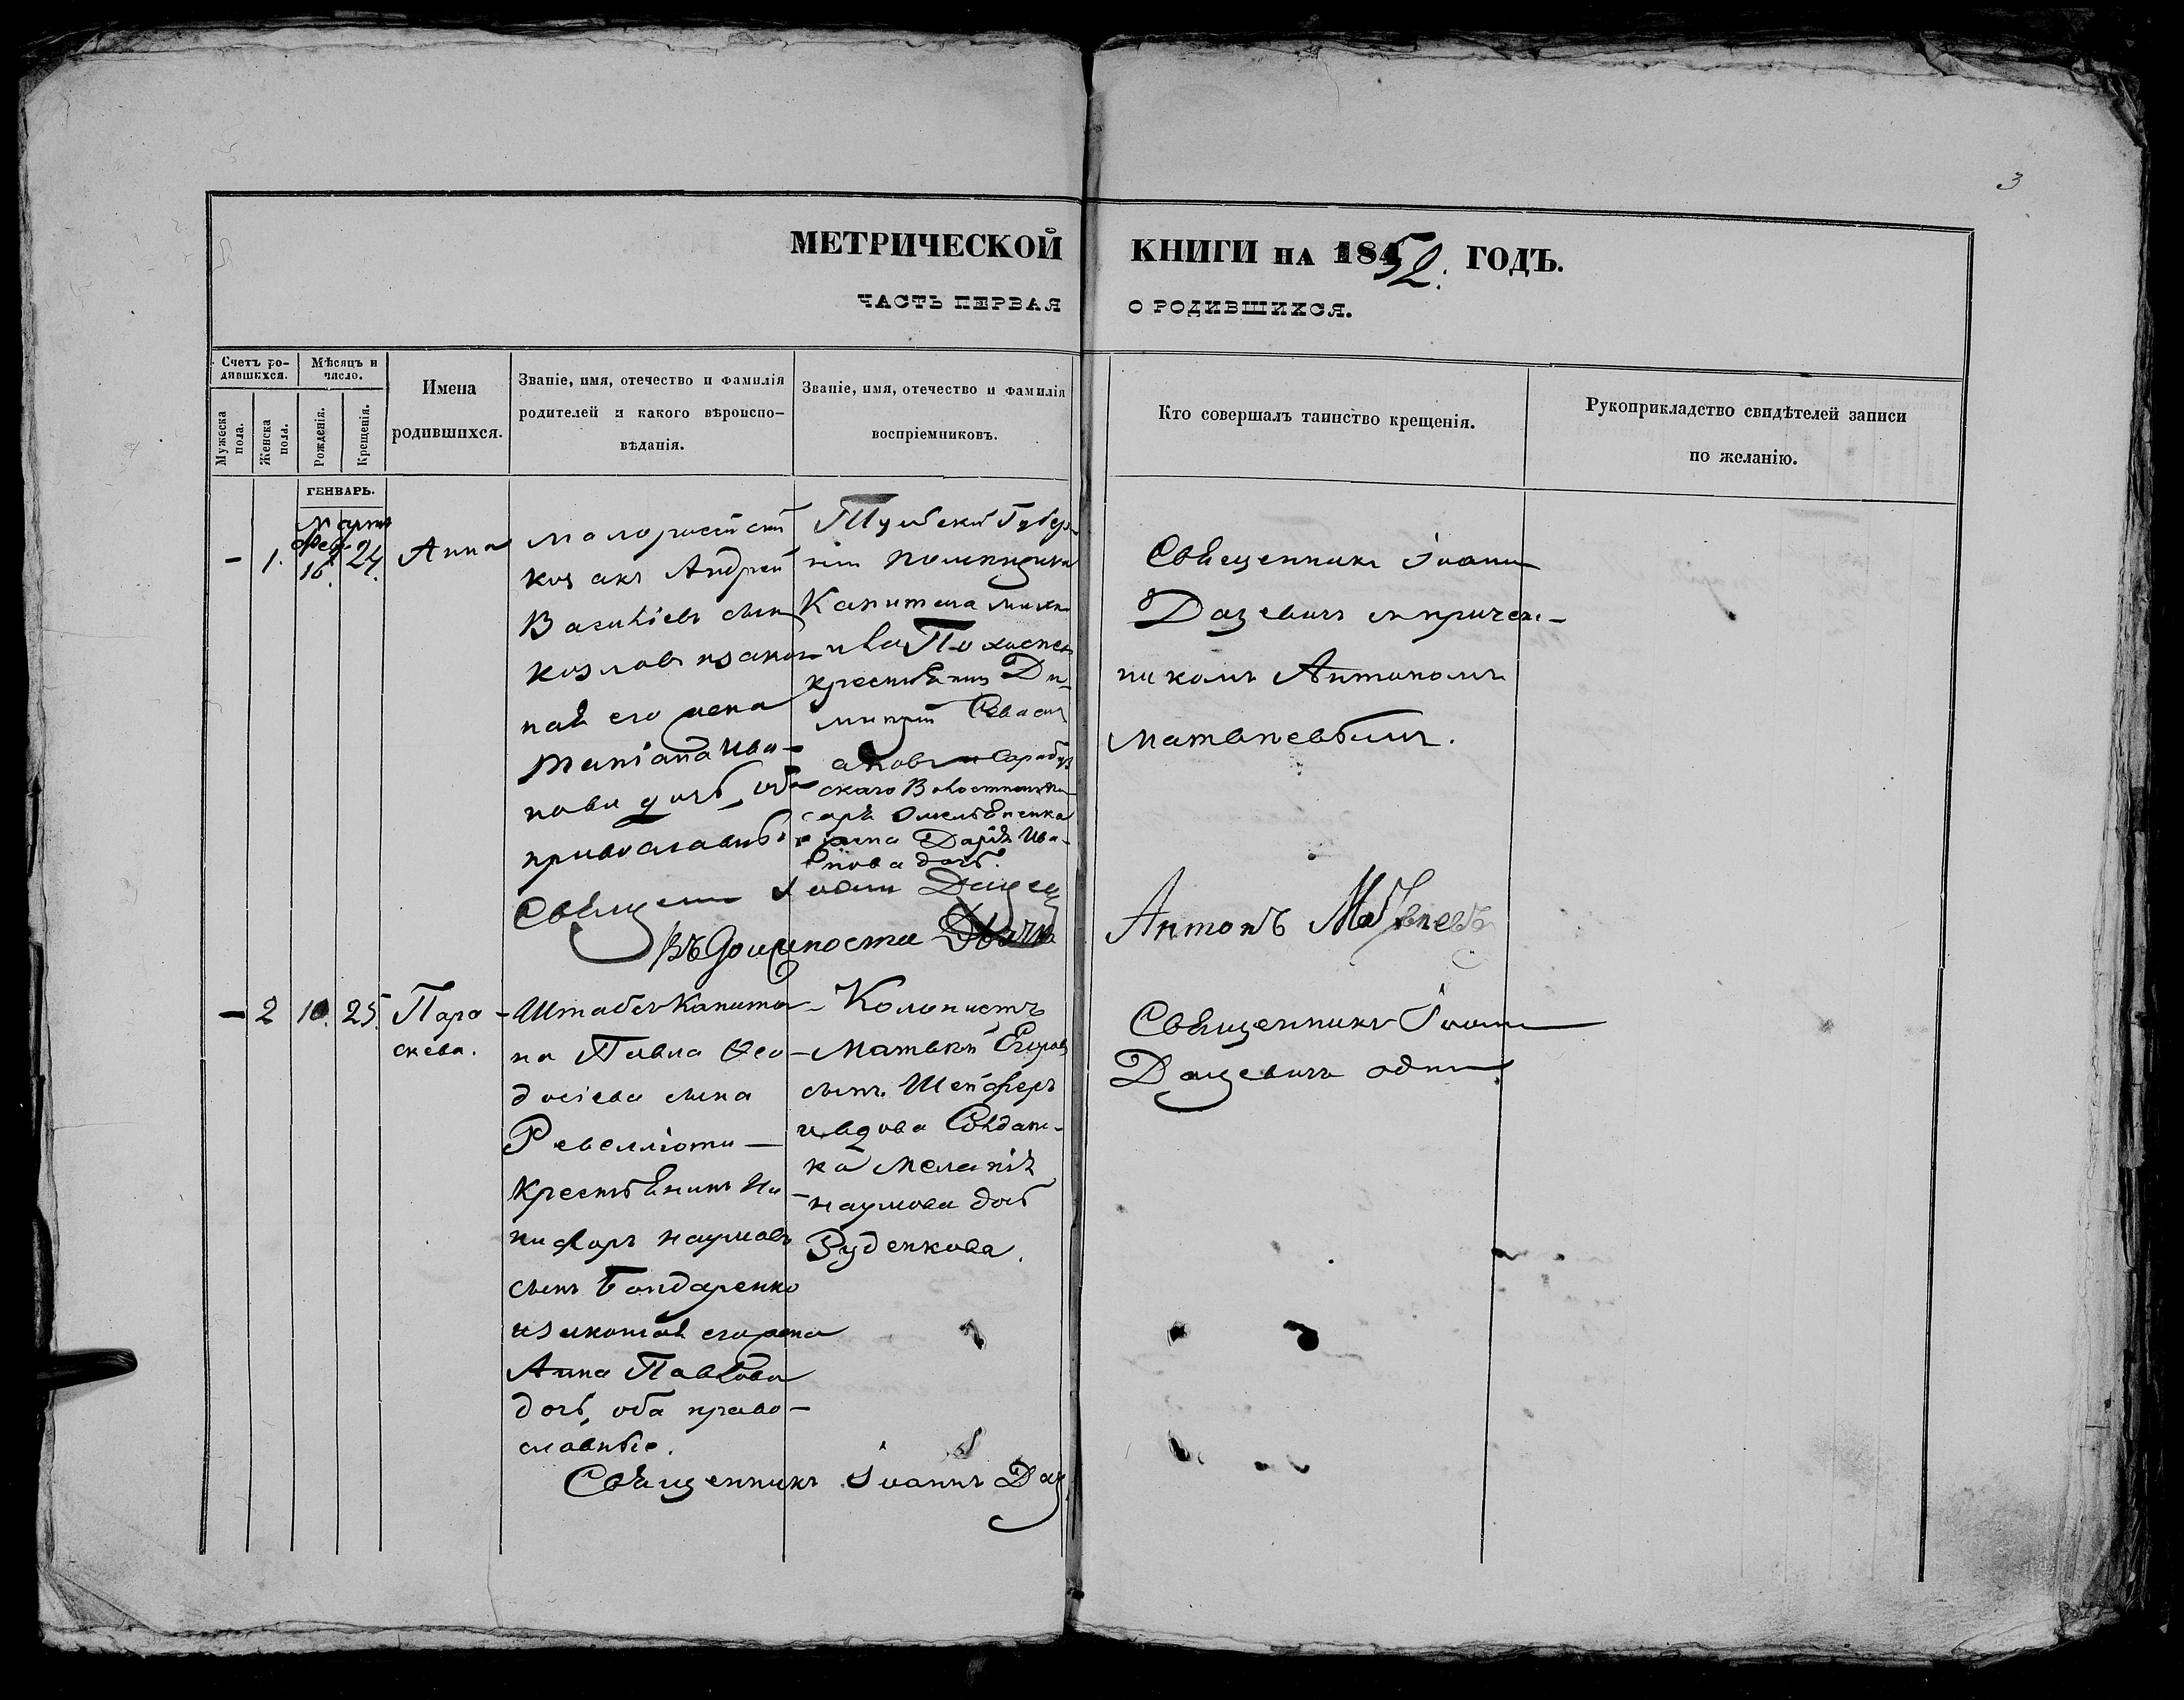 3
МЕТРИЧЕСКОЙ КНИГИ НА 1852. ГОДЪ.
ЧАСТЬ ПЕРВАЯ О РОДИВШИХСЯ.
Счетъ ро-
дившихся.
Мужеска
пола.
Женска
пола.
Мѣсяцъ и
число.
Рожденія.
Крещенія.
Имена
родившихся.
Званіе, имя, отечество и фамилія
родителей и какого вѣроиспо-
вѣданія.
Званіе, имя, отечество и фамилія
воспріемниковъ.
Кто совершалъ таинство крещенія.
Рукоприкладство свидѣтелей записи
по желанію.
ГЕНВАРЬ.
Мартъ
Фев.
- 1. 16. 24.
Анна
Малороссійскій
козакъ Андрей
Василіевъ сынъ
Козловъ и закон-
ная его жена
Татіана Ива-
нова дочь, оба
православные
Тульской Губер-
ніи помещика
Капитана
крестьянинъ Ди-
митрій Севасть
яновъ и Сарабуз
скаго Волостнаго пи-
саря Омельяненка
жена Дарія Ива-
нова дочь.
Священникъ Іоаннъ
Дацевичъ съ причет-
никомъ Антономъ
Матвеевымъ.
Священникъ Іоаннъ Дацев
Въ Должности Дьячка
Антонъ Матвеевъ
- 2 10. 25.
Пара-
скева.
Штабсъ Капита-
на Павла Фео-
досіева сына
Ревеліоти
крестьянинъ Ни-
кифоръ Наумовъ
сынъ Бондаренко
и законная его жена
Анна Павлова
дочь, оба право-
славные.
Колонистъ
Матвей Егоровъ
сынъ Шейферъ
и вдова Солдат-
ка Меланія
Наумова дочь
Руденкова.
Священникъ Іоаннъ
Дацевичъ одинъ
Священникъ Іоаннъ Дац